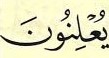 يُعْلِنُونَ